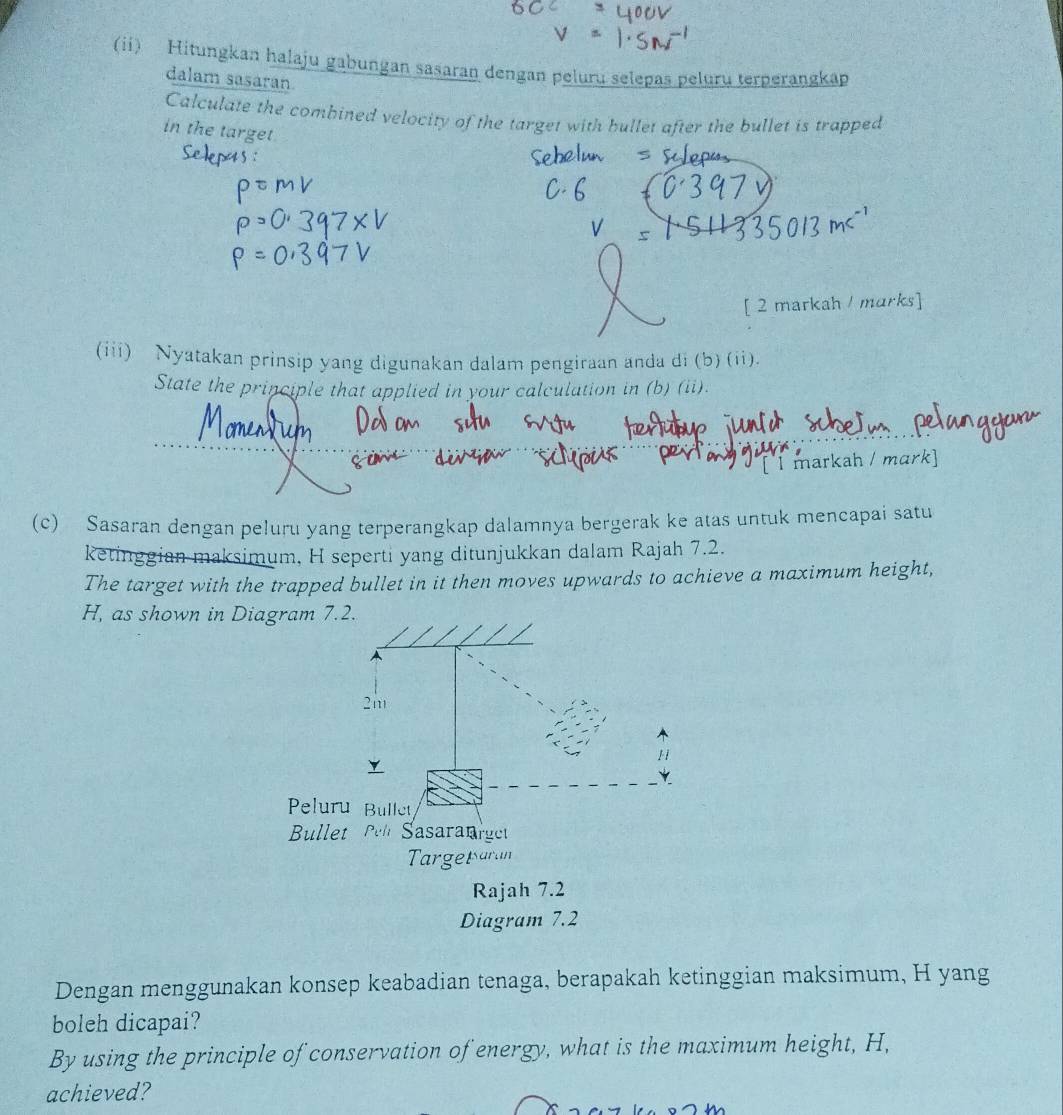 = 400V
V = 1.5ms⁻¹
(ii) Hitungkan halaju gabungan sasaran dengan peluru selepas peluru terperangkap
dalam sasaran
Calculate the combined velocity of the target with bullet after the bullet is trapped
in the target
Selepas: sebelum = selepas
p = mv 0.6 = 0.397V
p = 0.397 x V V = 1.511335013 ms⁻¹
p = 0.397 V
[ 2 markah / marks]
(iii) Nyatakan prinsip yang digunakan dalam pengiraan anda di (b) (ii).
State the principle that applied in your calculation in (b) (ii).
Momentum Dalam satu tertutup jumlah sebelum pelanggaran
sama dengan selepas
[ 1 markah / mark]
(c) Sasaran dengan peluru yang terperangkap dalamnya bergerak ke atas untuk mencapai satu
ketinggian maksimum, H seperti yang ditunjukkan dalam Rajah 7.2.
The target with the trapped bullet in it then moves upwards to achieve a maximum height,
H, as shown in Diagram 7.2.
2m
H
Peluru Bullet
Bullet Sasaran
Target
Rajah 7.2
Diagram 7.2
Dengan menggunakan konsep keabadian tenaga, berapakah ketinggian maksimum, H yang
boleh dicapai?
By using the principle of conservation of energy, what is the maximum height, H,
achieved?